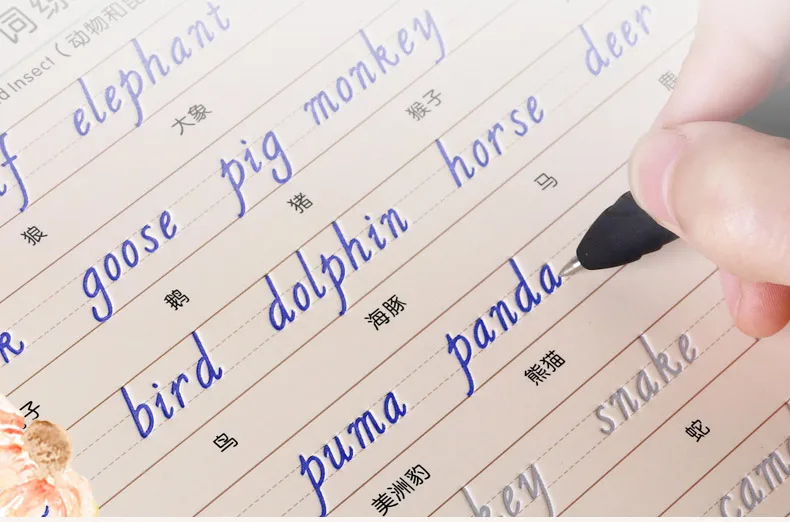 词
Insect（动物和昆
elephant
狼 大象
goose pig monkey
子 鹅 猪 猴子
bird dolphin horse deer
鸟 海豚 马 鹿
puma panda
美洲豹 熊猫
key snake
蛇
came